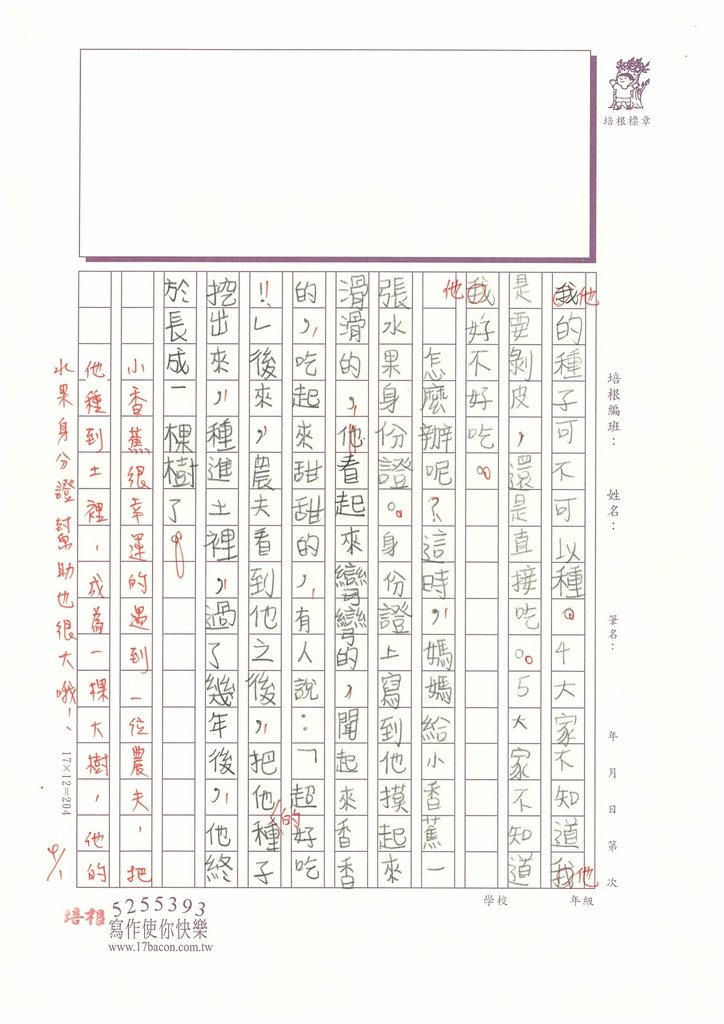 培根標章
培根編班：
姓名：
筆名：
年 月 日 第 次
學校 年級
我他的種子可不可以種。4大家不知道我他
是要剝皮，還是直接吃。5大家不知道
他我好不好吃。
怎麼辦呢？這時，媽媽給小香蕉一
張水果身份證。身份證上寫到他摸起來
滑滑的，他看起來彎彎的，聞起來香香
的，吃起來甜甜的，有人說：「超好吃
的！！」後來，農夫看到他之後，把他種子
挖出來，種進土裡，過了幾年後，他終
於長成一棵樹了。
小香蕉很幸運的遇到一位農夫，把
他種到土裡，成為一棵大樹，他的
水果身分證幫助也很大哦！
17×12=204
培根
5255393
寫作使你快樂
www.17bacon.com.tw